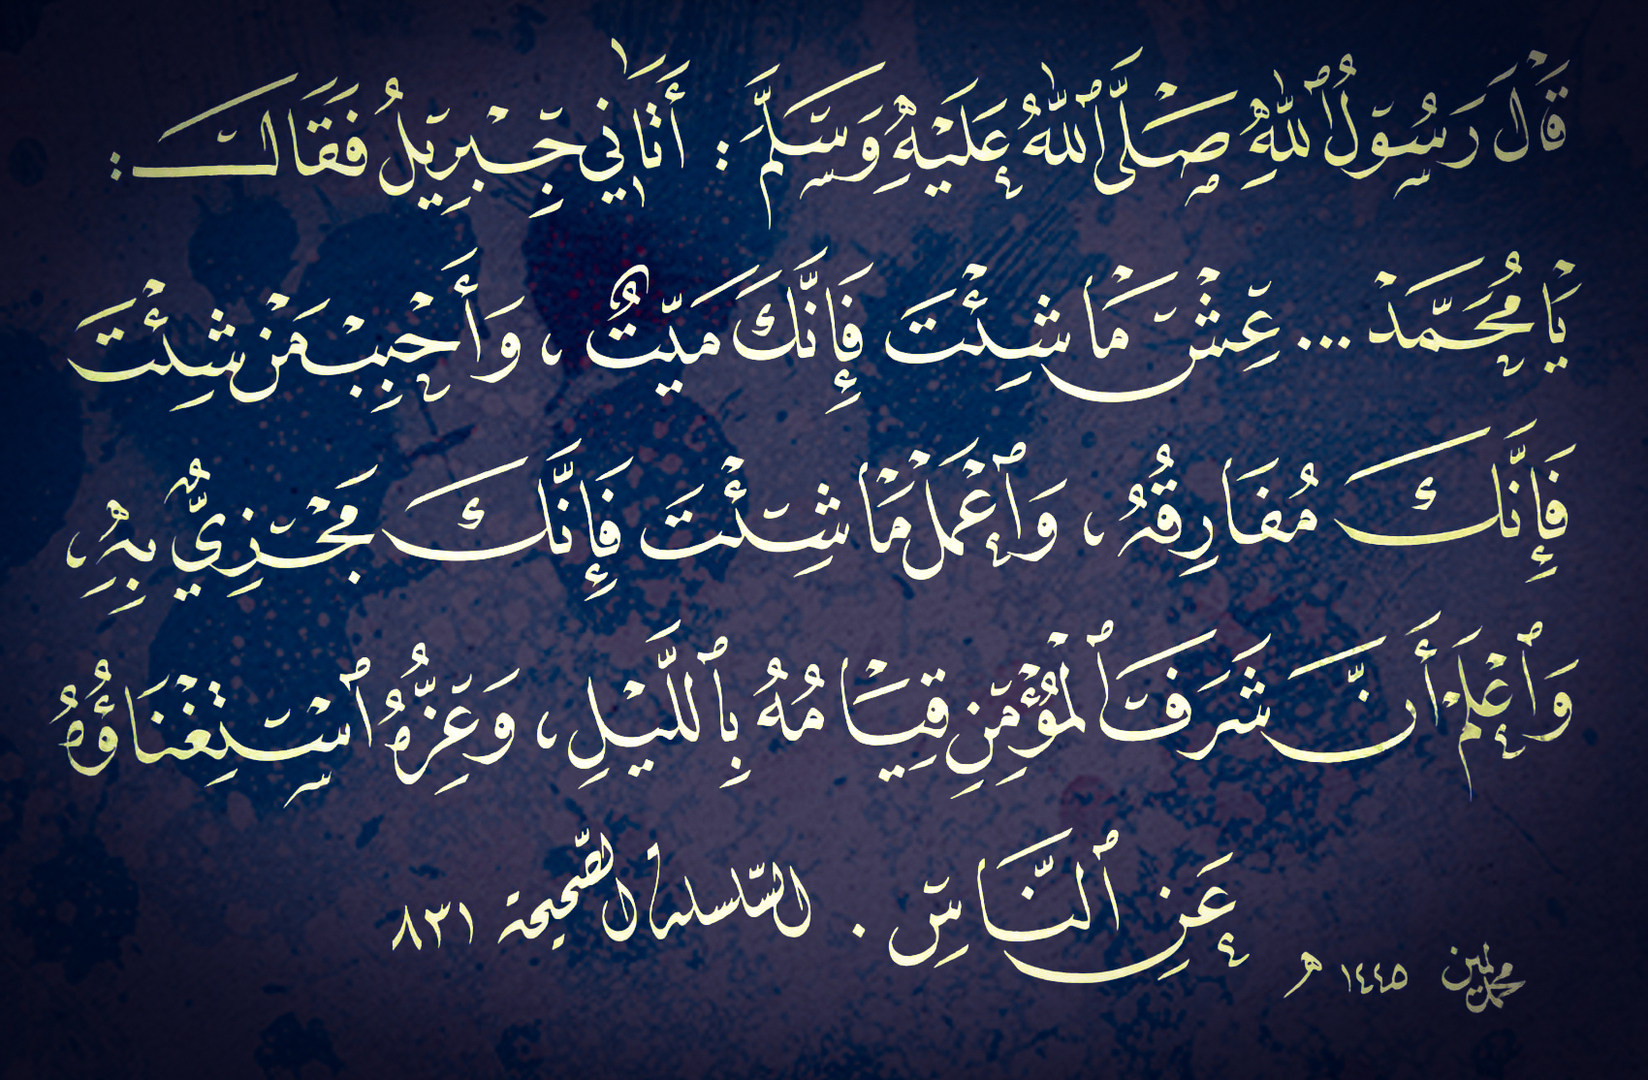 قَالَ رَسُولُ ٱللَّهِ صَلَّى ٱللَّهُ عَلَيْهِ وَسَلَّمَ : أَتَانِي جِبْرِيلُ فَقَالَ :
يَا مُحَمَّدْ ... عِشْ مَا شِئْتَ فَإِنَّكَ مَيِّتٌ ، وَأَحْبِبْ مَنْ شِئْتَ
فَإِنَّكَ مُفَارِقُهُ ، وَٱعْمَلْ مَا شِئْتَ فَإِنَّكَ مَجْزِيٌّ بِهِ ،
وَٱعْلَمْ أَنَّ شَرَفَ ٱلْمُؤْمِنِ قِيَامُهُ بِٱللَّيْلِ ، وَعِزُّهُ ٱسْتِغْنَاؤُهُ
عَنِ ٱلنَّاسِ . السلسلة الصحيحة ٨٣١
محمد لمين ١٤٤٥ هـ